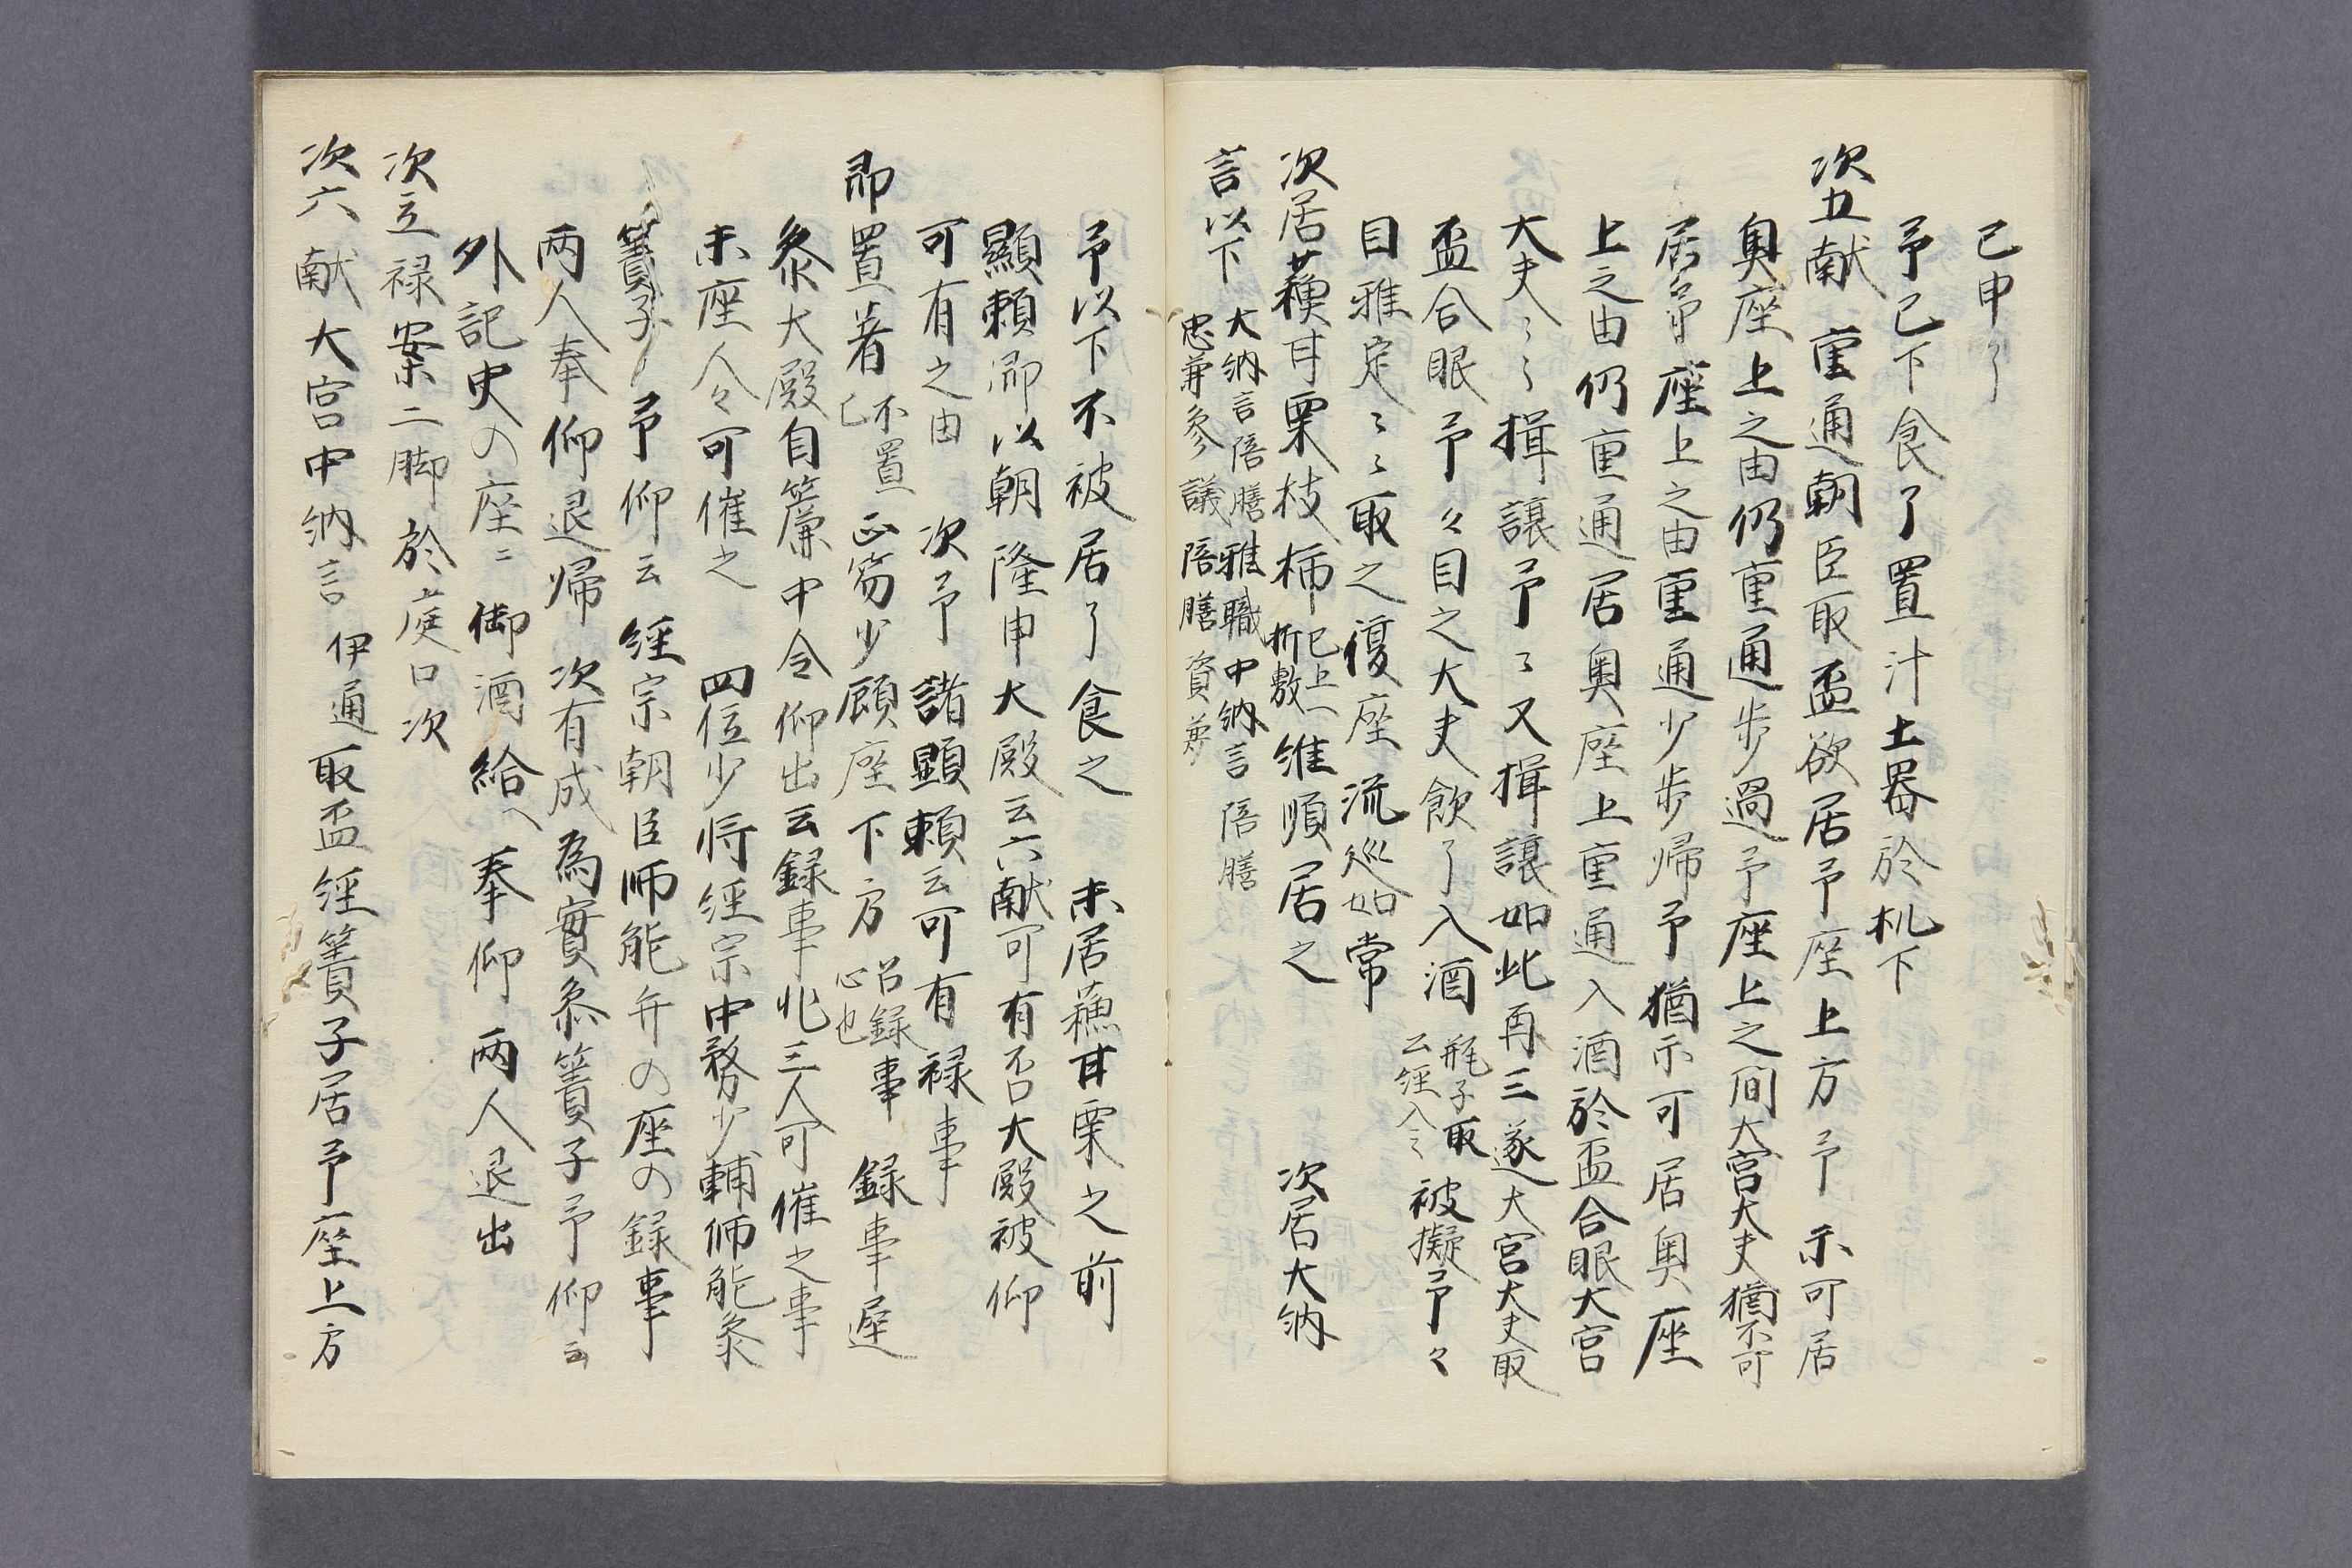 已申了
予已下食了置汁土器於机下
次五献 重通朝臣取盃欲居予座上方予示可居
奥座上之由仍重通歩過予座上之間大宮大夫猶不可
居予座上之由重通少歩帰予猶示可居奥座
上之由仍重通居奥座上重通入酒於盃合眼大宮
大夫〻〻揖譲予〻又揖譲如此再三遂大宮大夫取
盃合眼予々目之大夫飲了入酒 瓶子取
云経入之 被擬予々
目雅定〻〻取之復座流巡如常
次居蘓甘栗枝柿 已上一
折敷 雅順居之 次居大納
言以下 大納言陪膳雅職中納言陪膳
忠兼参議陪膳資兼
予以下不被居了食之 未居蘓甘栗之前
顕頼卿以朝隆申大殿云六献可有否大殿被仰
可有之由 次予諸顕頼云可有禄事
即置著 不置
已 正笏少顧座下方 召録事
心也 録事遅
参大殿自簾中令仰出云録事非三人可催之事
末座人々可催之 四位少将経宗中務少輔師能参
簀子予仰云経宗朝臣師能弁の座の録事
両人奉仰退帰 次有成為實参簀子予仰云
外記史の座ニ御酒給へ奉仰両人退出
次立禄案二脚於庭口次
次六献大宮中納言伊通取盃経簀子居予座上方